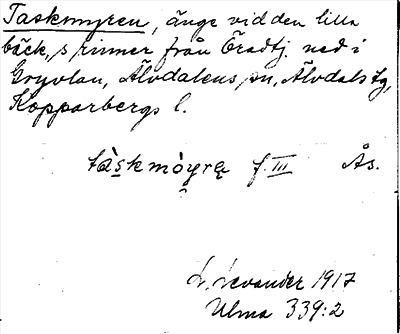 Taskmyren, änge vid den lilla
bäck, s rinner från Öradtj. ned i
Gryvlan, Älvdalens sn, Älvdals tg,
Kopparbergs l.
f. III Ås.
L. Levander 1917
Ulma 339:2